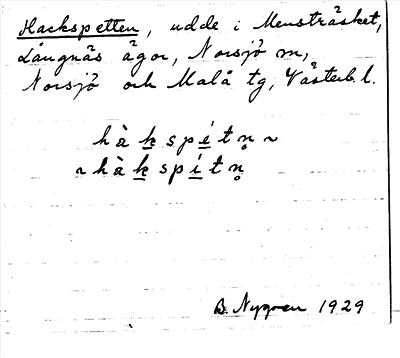 Hackspetten, udde i Mensträsket,
Långnäs ägor, Norsjö sn,
Norsjö och Malå tg, Västerb. l.
hàkspétn̥ ~
~ hàkspítn̥
B. Nygren 1929